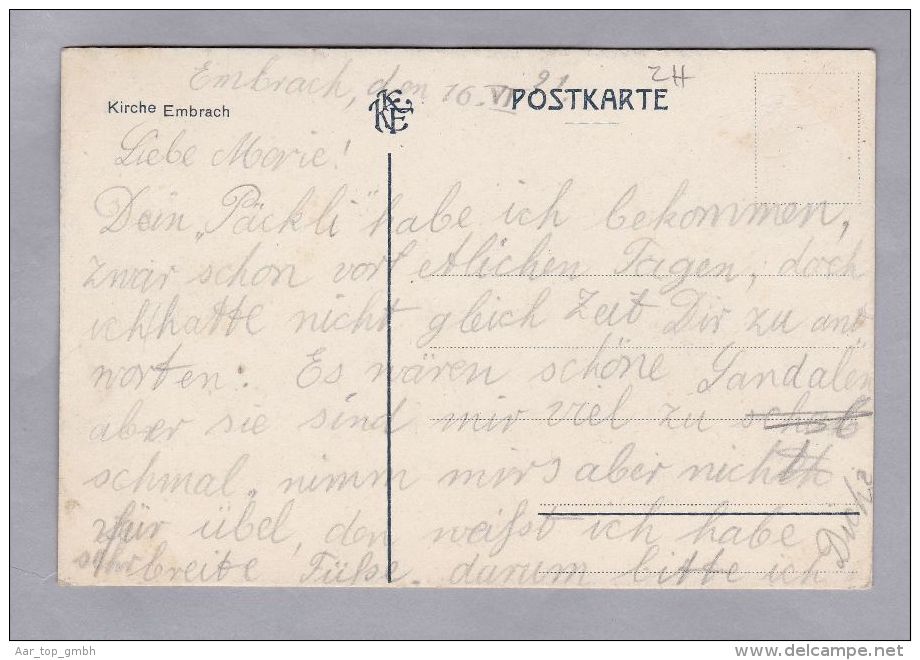 Embrach, den 16. VI 21.
ZH
Kirche Embrach
POSTKARTE
Liebe Marie!
Dein „Päckli" habe ich bekommen,
zwar schon vor etlichen Tagen, doch
ich hatte nicht gleich Zeit Dir zu ant
worten. Es wären schöne Sandalen
aber sie sind mir viel zu
schmal, nimm mirs aber nicht
für übel, den weißt ich habe
sehr breite Füße. darum bitte ich
Dich
Aar_top_gmbh
www.delcampe.net